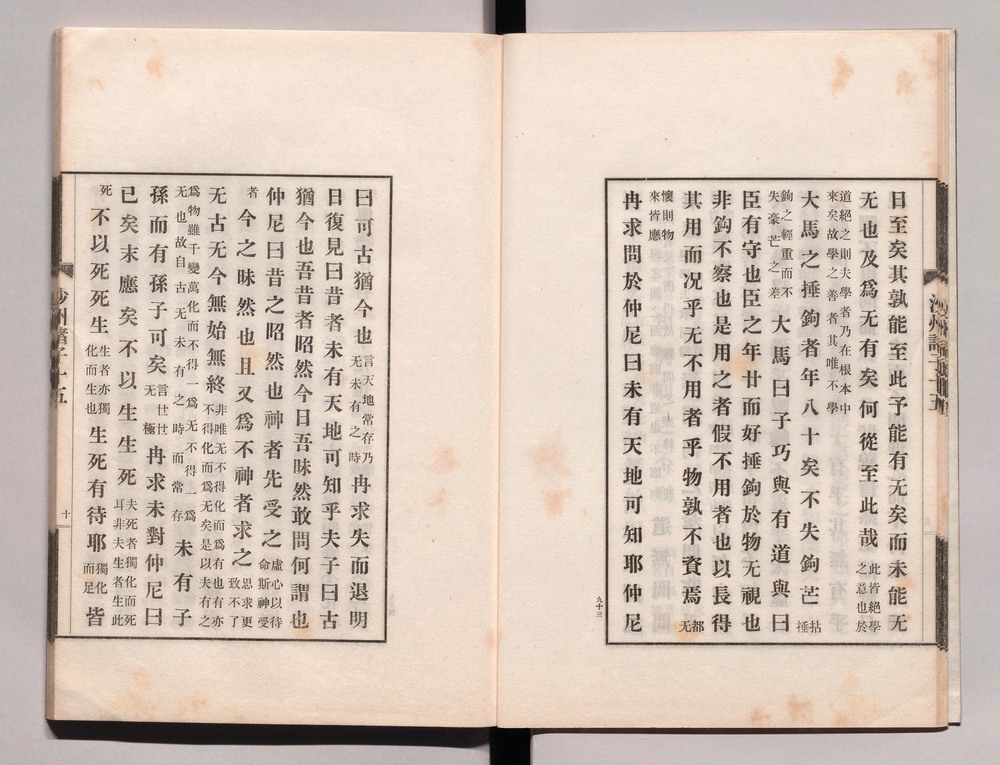 曰至矣其孰能至此予能有无矣而未能无
无也及爲无有矣何從至此哉此皆絕學之意也於
道絕之則夫學者乃在根本中來矣故學之善者其唯不學
大馬之捶鉤者年八十矣不失鉤芒拈捶
鉤之輕重而不失豪芒之差大馬曰子巧與有道與曰
臣有守也臣之年廿而好捶鉤於物无視也
非鈎不察也是用之者假不用者也以長得
其用而况乎无不用者乎物孰不資焉都无
懷則物來皆應
冉求問於仲尼曰未有天地可知耶仲尼
九十三
曰可古猶今也言天地常存乃无未有之時冉求失而退明
日復見曰昔者未有天地可知乎夫子曰古
猶今也吾昔者昭然今日吾昧然敢問何謂也
仲尼曰昔之昭然也神者先受之虛心以待命斯神受
者今之昧然也且又爲不神者求之思求更致不了
无古无今無始無終非唯无不得化而爲有也有亦不得化而爲无矣是以夫有之
爲物雖千變萬化而不得一爲无不得一爲无也故自古无未有之時而常存未有子
孫而有孫子可矣言世世无極冉求未對仲尼曰
已矣末應矣不以生生死夫死者獨化而死耳非夫生者生此
死不以死死生生者亦獨化而生也生死有待耶獨化而足皆
沙州諸子十五
十